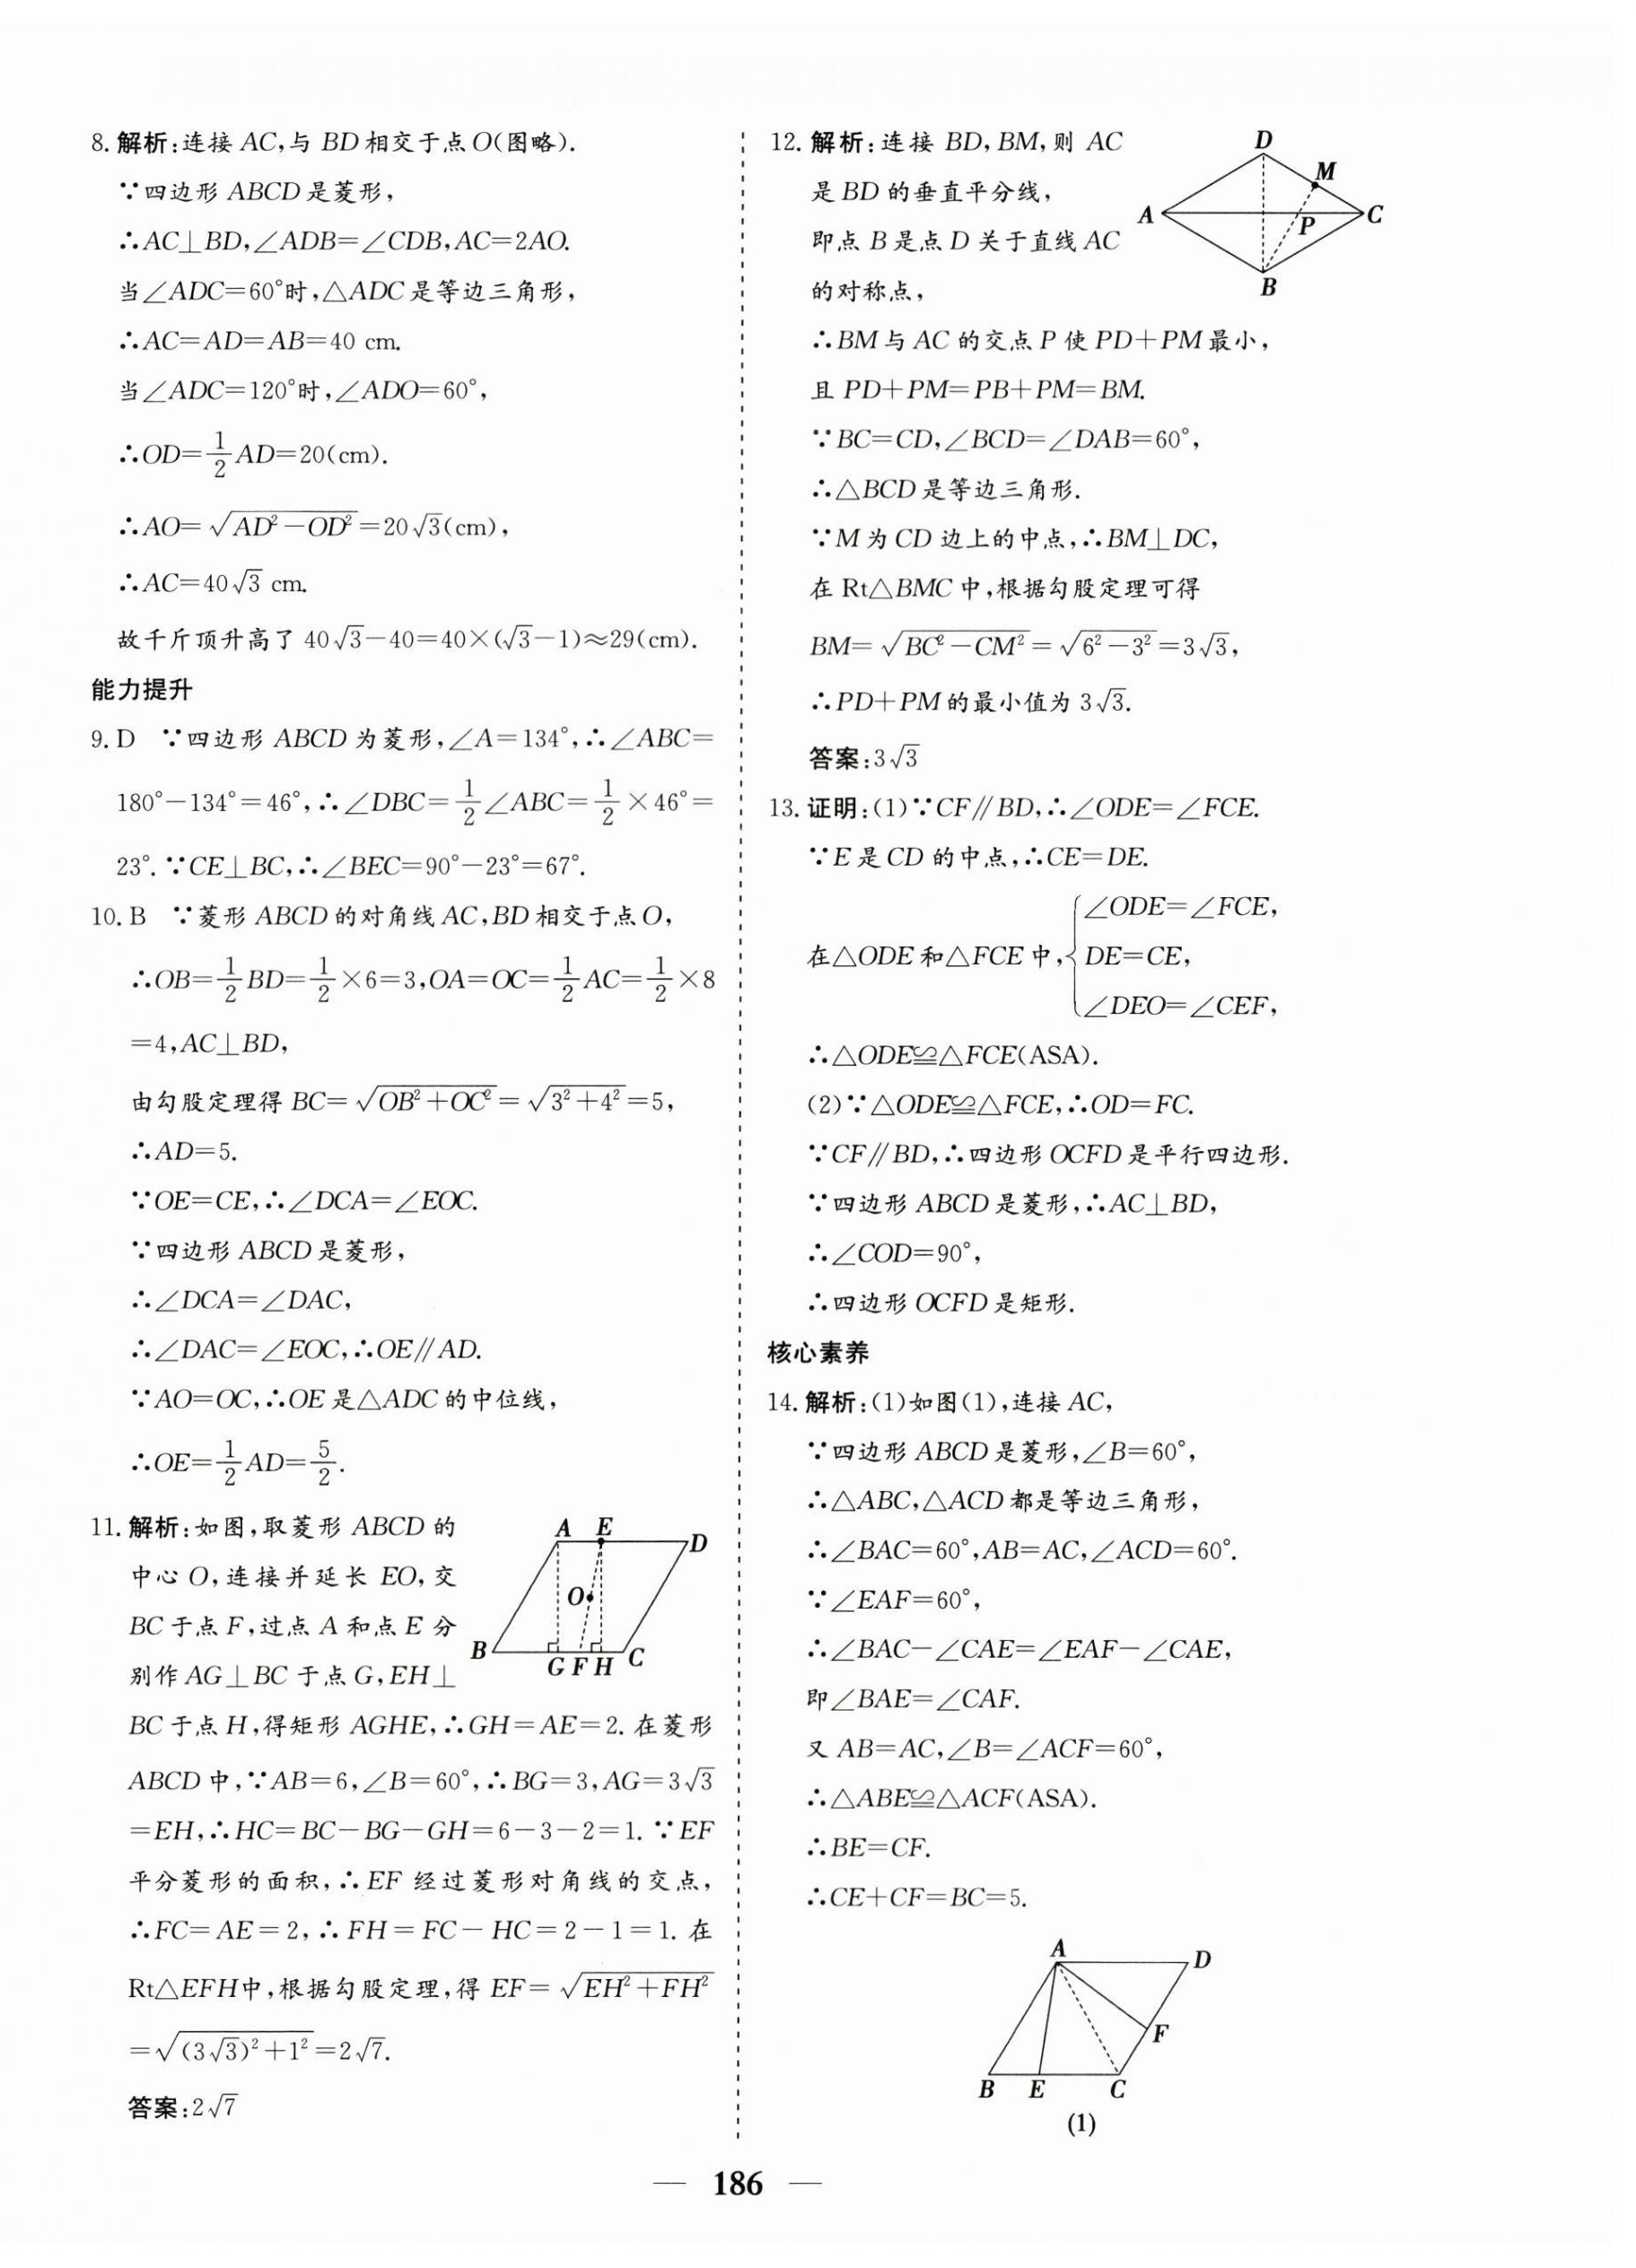 8. 解析:连接 AC,与 BD 相交于点 O(图略).
∵四边形 ABCD 是菱形,
∴AC⊥BD,∠ADB=∠CDB,AC=2AO.
当∠ADC=60°时,△ADC 是等边三角形,
∴AC=AD=AB=40 cm.
当∠ADC=120°时,∠ADO=60°,
∴OD=1/2 AD=20(cm).
∴AO=√(AD²-OD²)=20√3(cm),
∴AC=40√3 cm.
故千斤顶升高了 40√3-40=40×(√3-1)≈29(cm).
能力提升
9. D ∵四边形 ABCD 为菱形,∠A=134°,∴∠ABC=
180°-134°=46°,∴∠DBC=1/2∠ABC=1/2×46°=
23°. ∵CE⊥BC,∴∠BEC=90°-23°=67°.
10. B ∵菱形 ABCD 的对角线 AC,BD 相交于点 O,
∴OB=1/2 BD=1/2×6=3,OA=OC=1/2 AC=1/2×8
=4,AC⊥BD,
由勾股定理得 BC=√(OB²+OC²)=√(3²+4²)=5,
∴AD=5.
∵OE=CE,∴∠DCA=∠EOC.
∵四边形 ABCD 是菱形,
∴∠DCA=∠DAC,
∴∠DAC=∠EOC,∴OE∥AD.
∵AO=OC,∴OE 是△ADC 的中位线,
∴OE=1/2 AD=5/2.
11. 解析:如图,取菱形 ABCD 的
中心 O,连接并延长 EO,交
BC 于点 F,过点 A 和点 E 分
别作 AG⊥BC 于点 G,EH⊥
A E D
O
B G F H C
BC 于点 H,得矩形 AGHE,∴GH=AE=2. 在菱形
ABCD 中,∵AB=6,∠B=60°,∴BG=3,AG=3√3
=EH,∴HC=BC-BG-GH=6-3-2=1. ∵EF
平分菱形的面积,∴EF 经过菱形对角线的交点,
∴FC=AE=2,∴FH=FC-HC=2-1=1. 在
Rt△EFH中,根据勾股定理,得 EF=√(EH²+FH²)
=√((3√3)²+1²)=2√7.
答案:2√7
12. 解析:连接 BD,BM,则 AC
是 BD 的垂直平分线,
即点 B 是点 D 关于直线 AC
的对称点,
D
M
A P C
B
∴BM 与 AC 的交点 P 使 PD+PM 最小,
且 PD+PM=PB+PM=BM.
∵BC=CD,∠BCD=∠DAB=60°,
∴△BCD 是等边三角形.
∵M 为 CD 边上的中点,∴BM⊥DC,
在 Rt△BMC 中,根据勾股定理可得
BM=√(BC²-CM²)=√(6²-3²)=3√3,
∴PD+PM 的最小值为 3√3.
答案:3√3
13. 证明:(1)∵CF∥BD,∴∠ODE=∠FCE.
∵E 是 CD 的中点,∴CE=DE.
∠ODE=∠FCE,
在△ODE 和△FCE 中,{DE=CE,
∠DEO=∠CEF,
∴△ODE≌△FCE(ASA).
(2)∵△ODE≌△FCE,∴OD=FC.
∵CF∥BD,∴四边形 OCFD 是平行四边形.
∵四边形 ABCD 是菱形,∴AC⊥BD,
∴∠COD=90°,
∴四边形 OCFD 是矩形.
核心素养
14. 解析:(1)如图(1),连接 AC,
∵四边形 ABCD 是菱形,∠B=60°,
∴△ABC,△ACD 都是等边三角形,
∴∠BAC=60°,AB=AC,∠ACD=60°.
∵∠EAF=60°,
∴∠BAC-∠CAE=∠EAF-∠CAE,
即∠BAE=∠CAF.
又 AB=AC,∠B=∠ACF=60°,
∴△ABE≌△ACF(ASA).
∴BE=CF.
∴CE+CF=BC=5.
A D
F
B E C
(1)
— 186 —